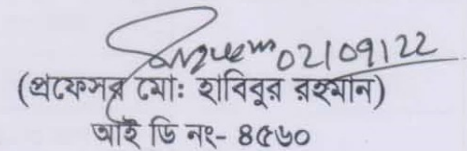 02/09/22
(প্রফেসর মোঃ হাবিবুর রহমান)
আই ডি নং- ৪৫৬০